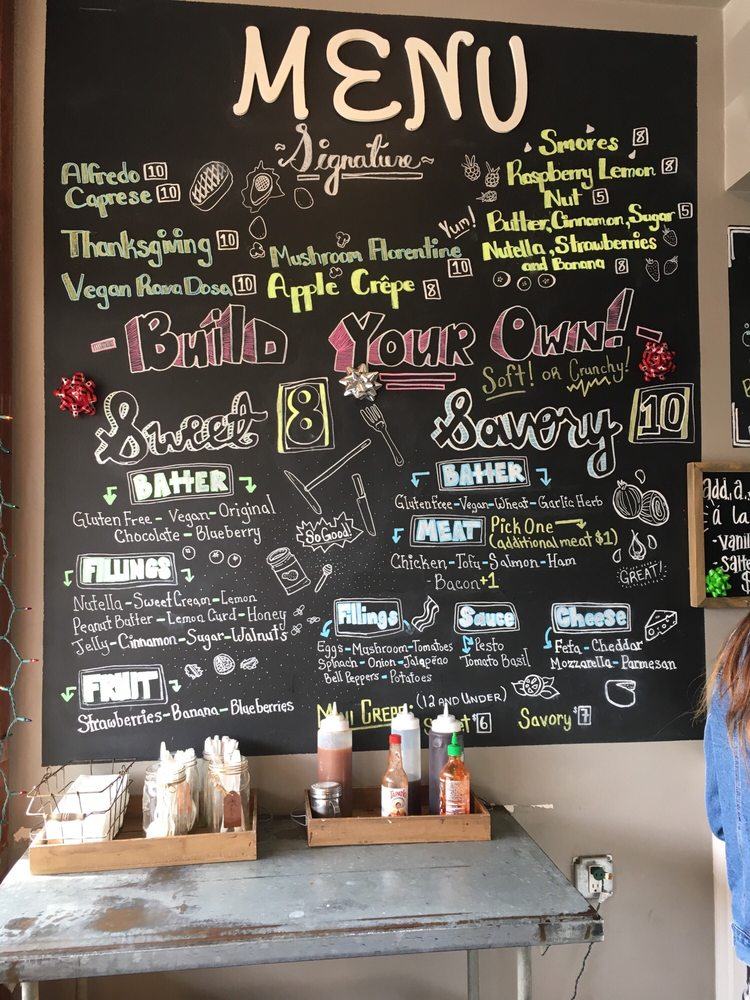 MENU
Signature
Alfredo 10
Caprese 10
Thanksgiving 10
Vegan Rava Dosa 10
Mushroom Florentine 10
Apple Crêpe 8
Yum!
S'mores 8
Raspberry Lemon 8
Nut 5
Butter, Cinnamon, Sugar 5
Nutella, Strawberries
and Banana 8
- Build Your Own! -
Soft! or Crunchy!
Sweet 8
BATTER
Gluten Free - Vegan - Original
Chocolate - Blueberry
FILLINGS
Nutella - Sweet Cream - Lemon
Peanut Batter - Lemon Curd - Honey
Jelly - Cinnamon - Sugar - Walnuts
FRUIT
Strawberries - Banana - Blueberries
So Good!
Savory 10
BATTER
Gluten Free - Vegan - Wheat - Garlic Herb
MEAT Pick One
(additional meat $1)
Chicken - Tofu - Salmon - Ham
- Bacon +1
GREAT!
Fillings
Eggs - Mushroom - Tomatoes
Spinach - Onion - Jalapeño
Bell Peppers - Potatoes
Sauce
Pesto
Tomato Basil
Cheese
Feta - Cheddar
Mozzarella - Parmesan
Mini Crepe: (12 AND UNDER)
$6 Savory $7
add a
á la